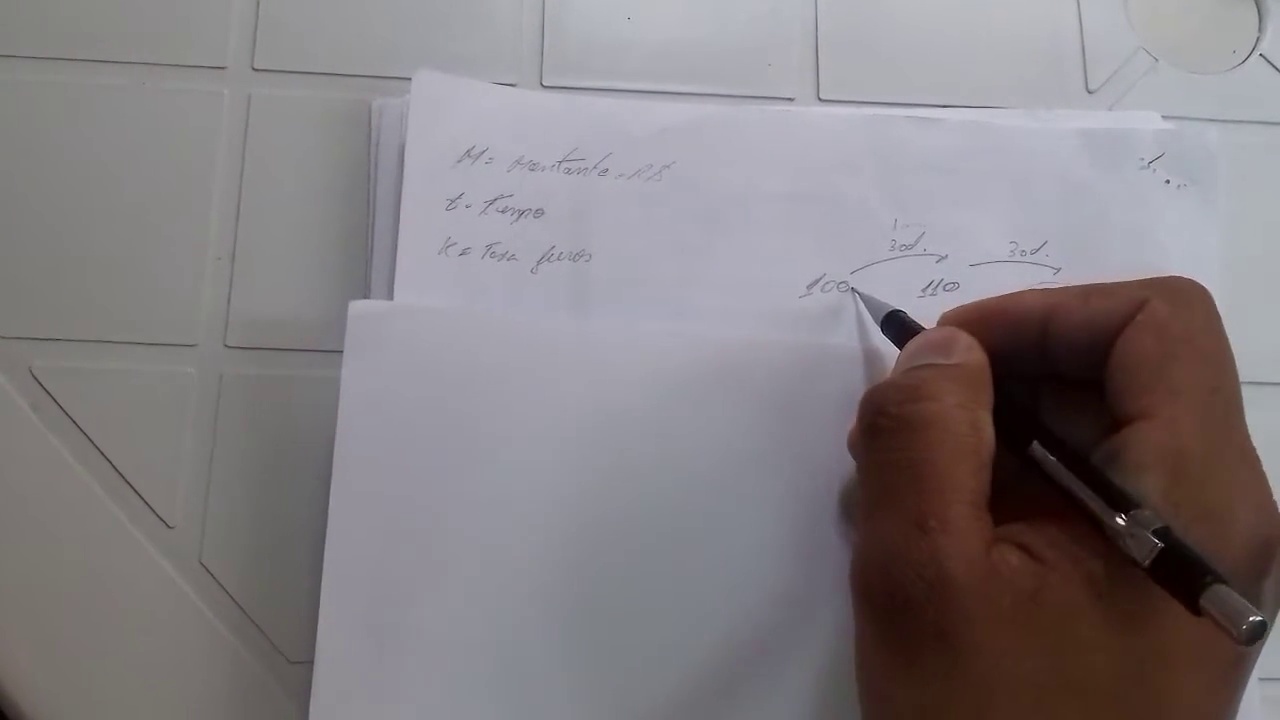 M = Montante = R$
t = Tempo
K = Taxa juros
30d. 30d.
100 110